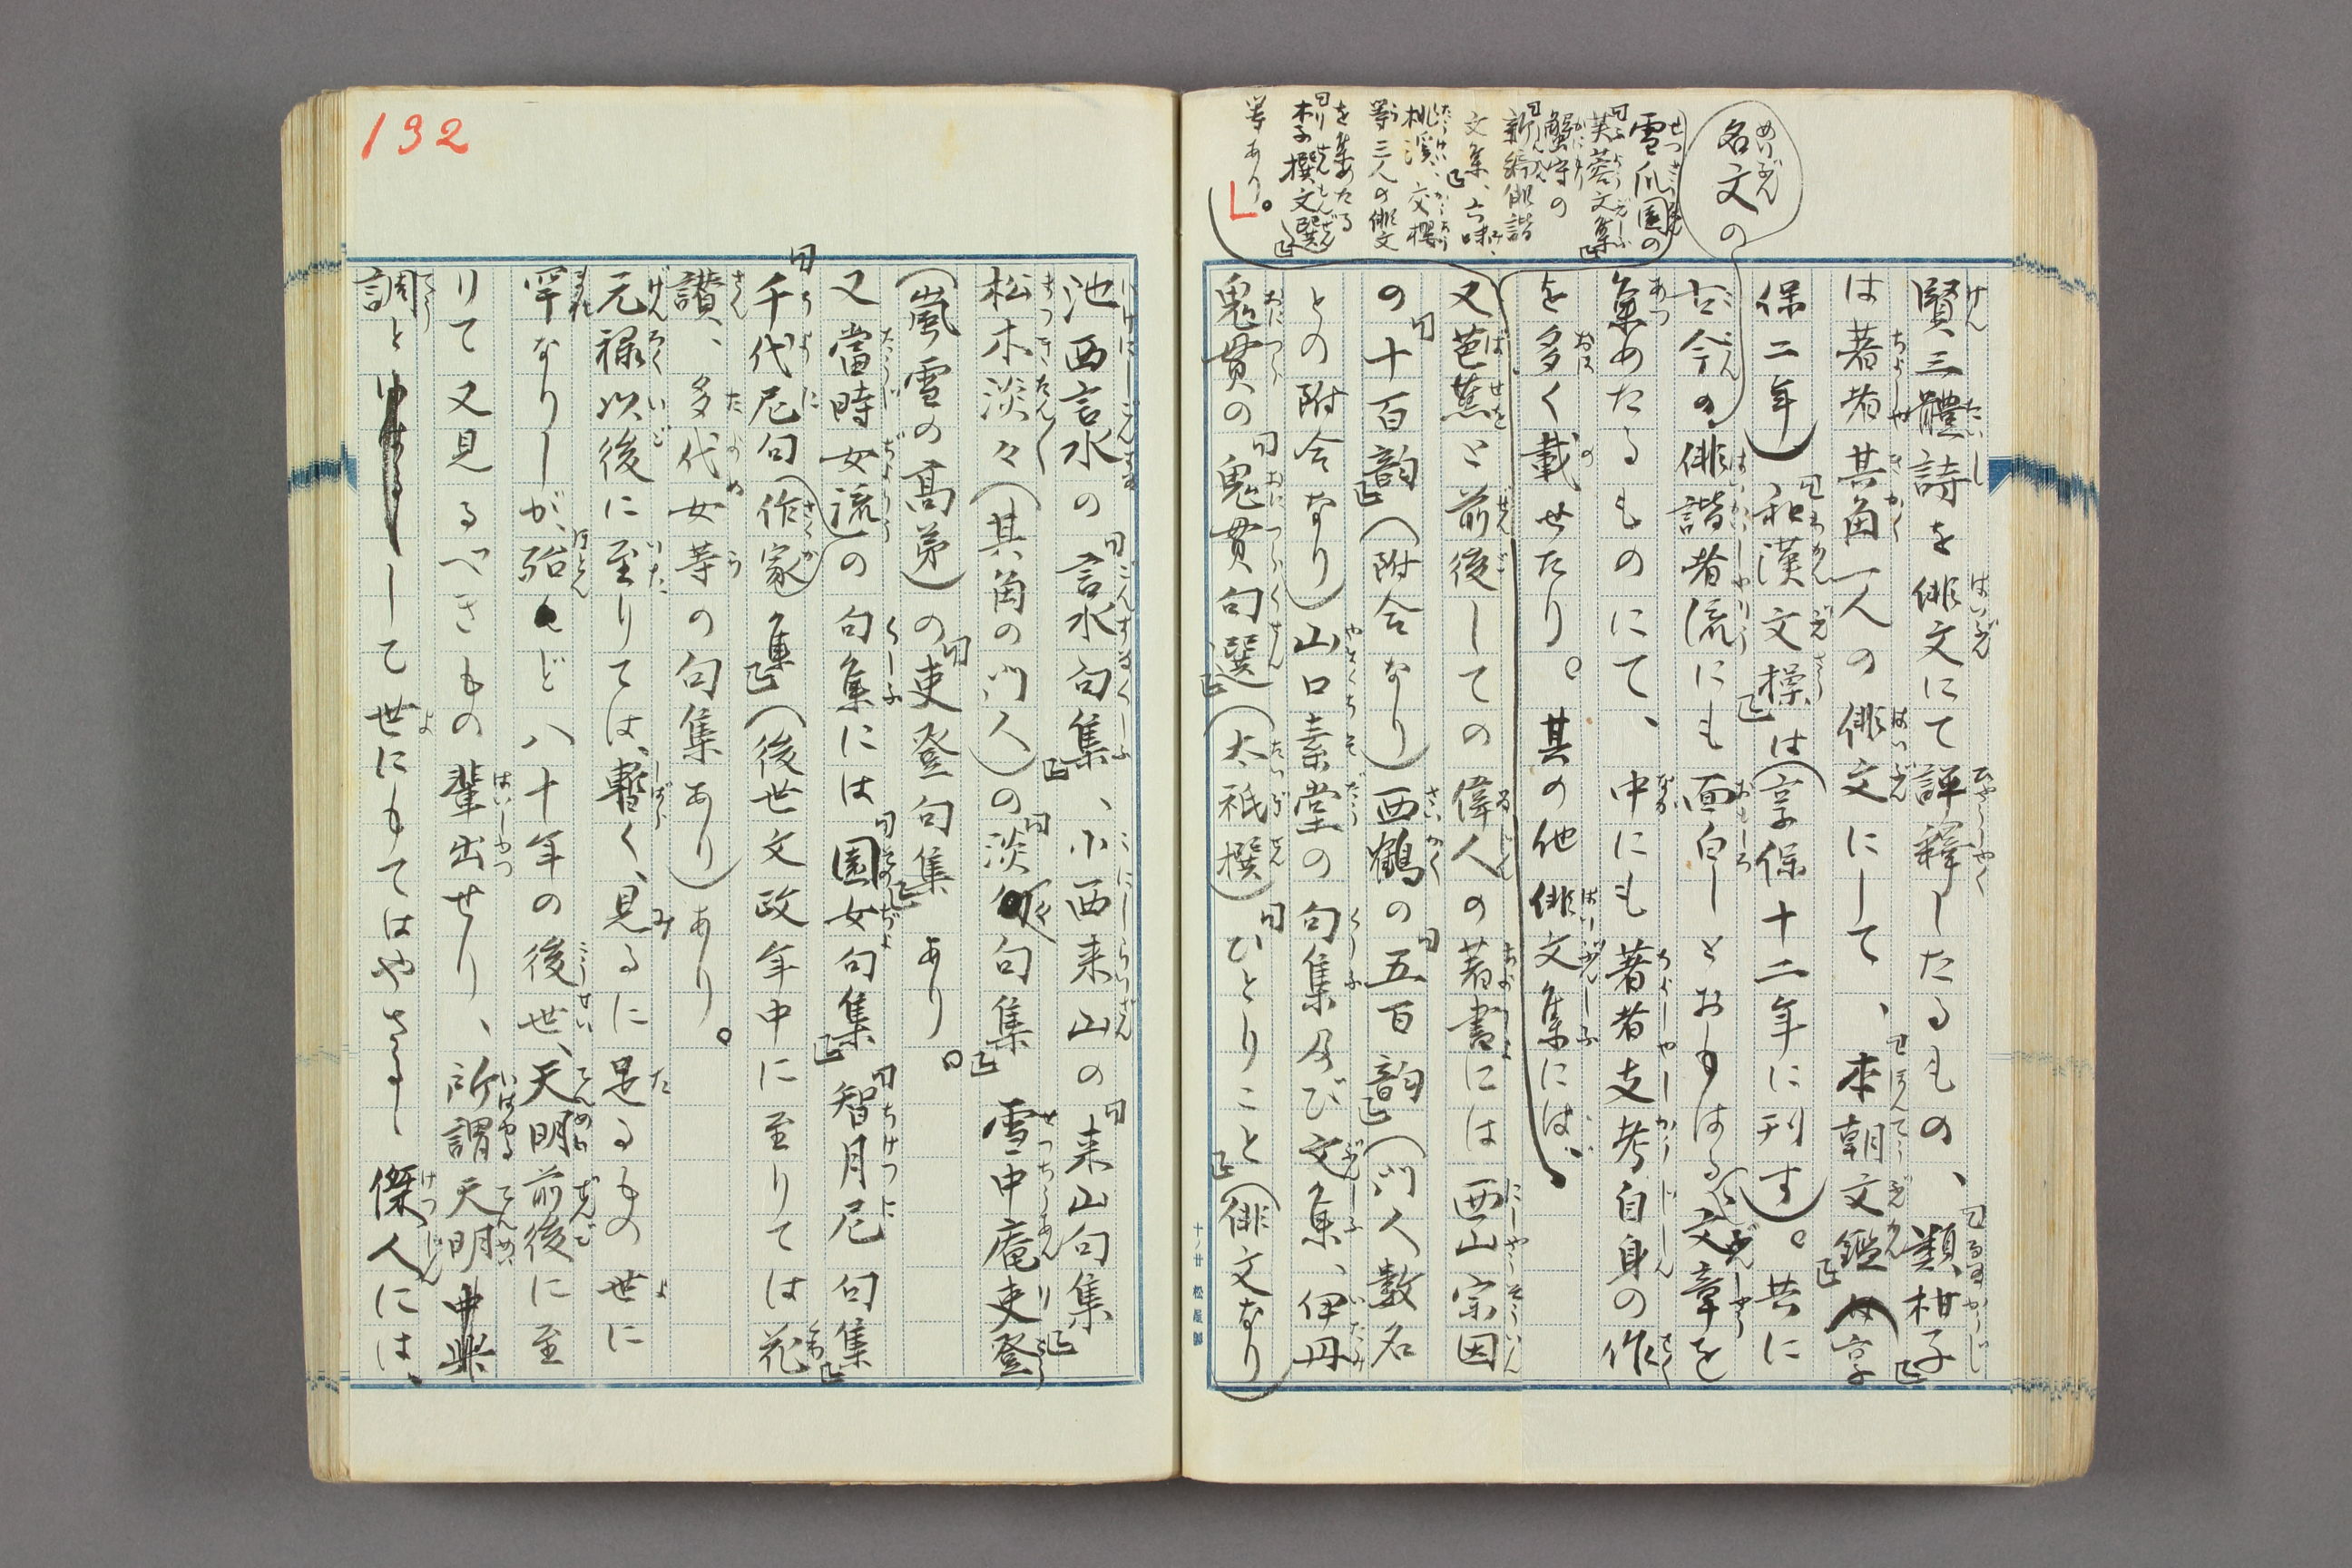 賢、三體詩を俳文にて評釋したるもの、『類柑子』
は著者其角一人の俳文にして、『本朝文鑑』(享
保二年)、『和漢文操』は(享保十二年に刊す)。共に
古今の俳諧者流にも面白しとおもはるゝ文章を
集めたるものにて、中にも著者支考自身の作
を多く載せたり。其の他俳文集には、
又芭蕉と前後しての偉人の著書には西山宗因
の『十百韻』(附合なり)西鶴の『五百韻』(門人数名
との附合なり)山口素堂の句集及び文集、伊丹
鬼貫の『鬼貫句選』(太祇撰)『ひとりこと』(俳文なり)
名文の
雪瓜園の
『芙蓉文集』
蟹守の
『新編俳諧
文集』、六味、
桃溪、交櫻
等三人の俳文
を集めたる
『李撰文選』
等あり。
十ノ廿 松屋製
132
池西言水の『言水句集』、小西来山の『来山句集』
松木淡々(其角の門人)の『淡々句集』雪中庵吏登
(嵐雪の高弟)の『吏登句集』あり。
又當時女流の句集には『園女句集』『智月尼句集』
『千代尼句集』(後世文政年中に至りては花
作家
讃、多代女等の句集あり)あり。
元禄以後に至りては、暫く、見るに足るもの世に
罕なりしが、殆んど八十年の後世、天明前後に至
りて又見るべきもの輩出せり、所謂天明中興
調と して世にもてはやさるゝ傑人には、